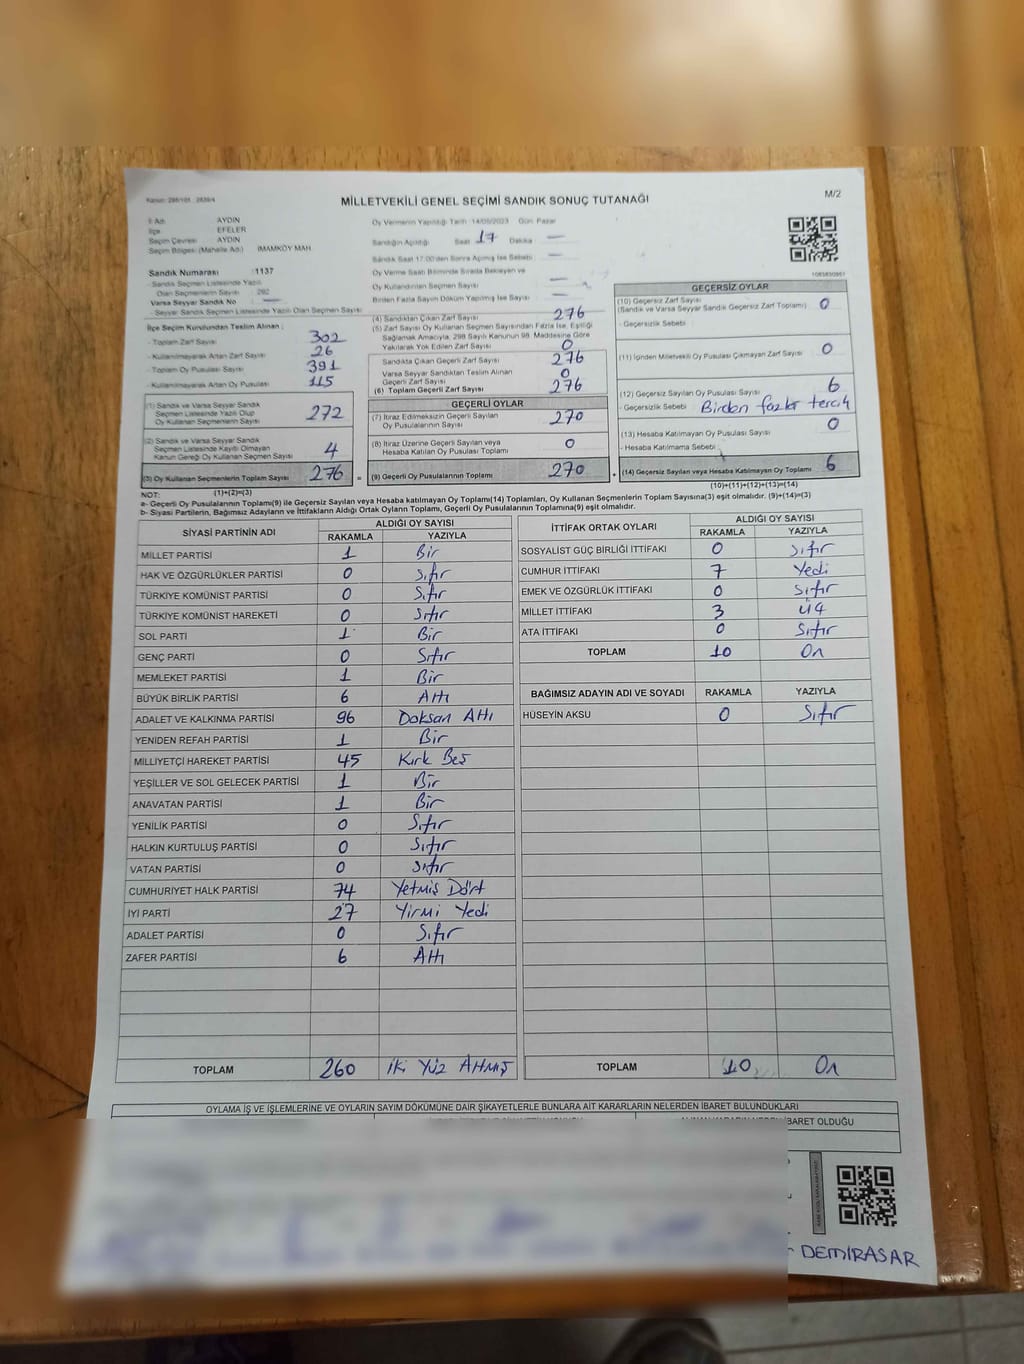 MİLLETVEKİLİ GENEL SEÇİMİ SANDIK SONUÇ TUTANAĞI
M/2
İl Adı AYDIN
İlçe EFELER
Seçim Çevresi AYDIN
Seçim Bölgesi (Mahalle Adı) İMAMKÖY MAH.
Sandık Numarası :1137
- Sandık Seçmen Listesinde Yazılı
Olan Seçmenlerin Sayısı : 292
Varsa Seyyar Sandık No
- Seyyar Sandık Seçmen Listesinde Yazılı Olan Seçmen Sayısı
İlçe Seçim Kurulundan Teslim Alınan :
- Toplam Zarf Sayısı 302
- Kullanılmayarak Artan Zarf Sayısı 26
- Toplam Oy Pusulası 391
- Kullanılmayarak Artan Oy Pusulası 115
(1) Sandık ve Varsa Seyyar Sandık
Seçmen Listesinde Yazılı Olup
Oy Kullanan Seçmenlerin Sayısı 272
(2) Sandık ve Varsa Seyyar Sandık
Seçmen Listesinde Kayıtlı Olmayan
Kanun Gereği Oy Kullanan Seçmen Sayısı 4
(3) Oy Kullanan Seçmenlerin Toplam Sayısı 276 =
(1)+(2)=(3)
Oy Vermenin Yapıldığı Tarih :14/05/2023 Gün: Pazar
Sandığın Açıldığı Saat 17 Dakika —
Sandık Saat 17:00'den Sonra Açılmış İse Sebebi —
Oy Verme Saati Bitiminde Sırada Bekleyen ve
Oy Kullandırılan Seçmen Sayısı —
Birden Fazla Sayım Döküm Yapılmış İse Sayısı —
(4) Sandıktan Çıkan Zarf Sayısı 276
(5) Zarf Sayısı Oy Kullanan Seçmen Sayısından Fazla İse, Eşitliği
Sağlamak Amacıyla, 298 Sayılı Kanunun 98. Maddesine Göre
Yakılarak Yok Edilen Zarf Sayısı 0
Sandıkta Çıkan Geçerli Zarf Sayısı 276
Varsa Seyyar Sandıktan Teslim Alınan
Geçerli Zarf Sayısı 0
(6) Toplam Geçerli Zarf Sayısı 276
GEÇERLİ OYLAR
(7) İtiraz Edilmeksizin Geçerli Sayılan
Oy Pusulalarının Sayısı 270
(8) İtiraz Üzerine Geçerli Sayılan veya
Hesaba Katılan Oy Pusulası Sayısı 0
(9) Geçerli Oy Pusulalarının Toplamı 270 +
GEÇERSİZ OYLAR
(10) Geçersiz Zarf Sayısı
(Sandık ve Varsa Seyyar Sandık Geçersiz Zarf Toplamı) 0
- Geçersizlik Sebebi :
(11) İçinden Milletvekili Oy Pusulası Çıkmayan Zarf Sayısı 0
(12) Geçersiz Sayılan Oy Pusulası Sayısı 6
- Geçersizlik Sebebi Birden fazla tercih
(13) Hesaba Katılmayan Oy Pusulası Sayısı 0
- Hesaba Katılmama Sebebi :
(14) Geçersiz Sayılan veya Hesaba Katılmayan Oy Toplamı 6
(10)+(11)+(12)+(13)=(14)
NOT:
a- Geçerli Oy Pusulalarının Toplamı(9) ile Geçersiz Sayılan veya Hesaba katılmayan Oy Toplamı(14) Toplamları, Oy Kullanan Seçmenlerin Toplam Sayısına(3) eşit olmalıdır. (9)+(14)=(3)
b- Siyasi Partilerin, Bağımsız Adayların ve İttifakların Aldığı Ortak Oyların Toplamı, Geçerli Oy Pusulalarının Toplamına(9) eşit olmalıdır.
SİYASİ PARTİNİN ADI ALDIĞI OY SAYISI
RAKAMLA YAZIYLA
MİLLET PARTİSİ 1 Bir
HAK VE ÖZGÜRLÜKLER PARTİSİ 0 Sıfır
TÜRKİYE KOMÜNİST PARTİSİ 0 Sıfır
TÜRKİYE KOMÜNİST HAREKETİ 0 Sıfır
SOL PARTİ 1 Bir
GENÇ PARTİ 0 Sıfır
MEMLEKET PARTİSİ 1 Bir
BÜYÜK BİRLİK PARTİSİ 6 Altı
ADALET VE KALKINMA PARTİSİ 96 Doksan Altı
YENİDEN REFAH PARTİSİ 1 Bir
MİLLİYETÇİ HAREKET PARTİSİ 45 Kırk Beş
YEŞİLLER VE SOL GELECEK PARTİSİ 1 Bir
ANAVATAN PARTİSİ 1 Bir
YENİLİK PARTİSİ 0 Sıfır
HALKIN KURTULUŞ PARTİSİ 0 Sıfır
VATAN PARTİSİ 0 Sıfır
CUMHURİYET HALK PARTİSİ 74 Yetmiş Dört
İYİ PARTİ 27 Yirmi Yedi
ADALET PARTİSİ 0 Sıfır
ZAFER PARTİSİ 6 Altı
TOPLAM 260 İki Yüz Altmış
İTTİFAK ORTAK OYLARI ALDIĞI OY SAYISI
RAKAMLA YAZIYLA
SOSYALİST GÜÇ BİRLİĞİ İTTİFAKI 0 Sıfır
CUMHUR İTTİFAKI 7 Yedi
EMEK VE ÖZGÜRLÜK İTTİFAKI 0 Sıfır
MİLLET İTTİFAKI 3 Üç
ATA İTTİFAKI 0 Sıfır
TOPLAM 10 On
BAĞIMSIZ ADAYIN ADI VE SOYADI RAKAMLA YAZIYLA
HÜSEYİN AKSU 0 Sıfır
TOPLAM 10 On
OYLAMA İŞ VE İŞLEMLERİNE VE OYLARIN SAYIM DÖKÜMÜNE DAİR ŞİKAYETLERLE BUNLARA AİT KARARLARIN NELERDEN İBARET BULUNDUKLARI
İBARET OLDUĞU
DEMİRASAR